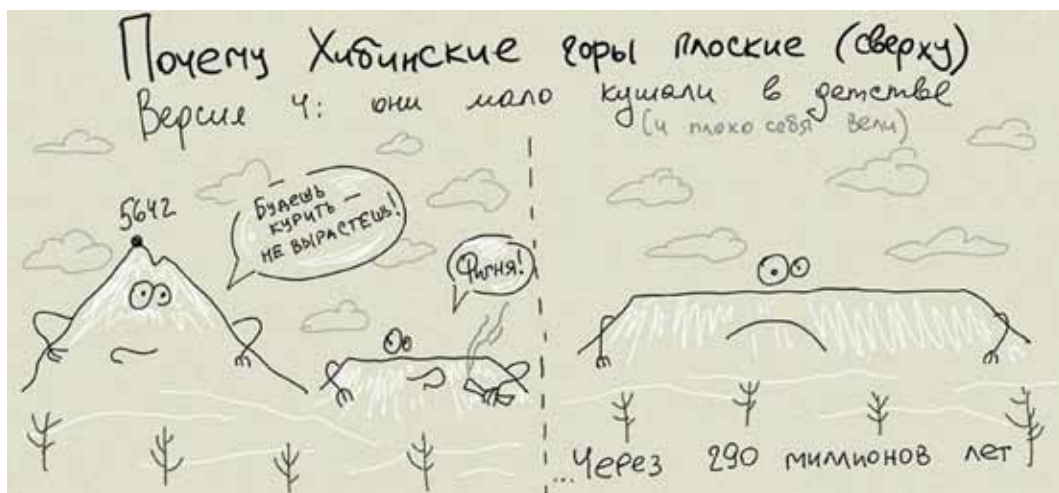 Почему Хибинские горы плоские (сверху)
Версия 4: они мало кушали в детстве
(и плохо себя вели)
5642
Будешь
курить –
не вырастешь!
Фигня!
...Через 290 миллионов лет